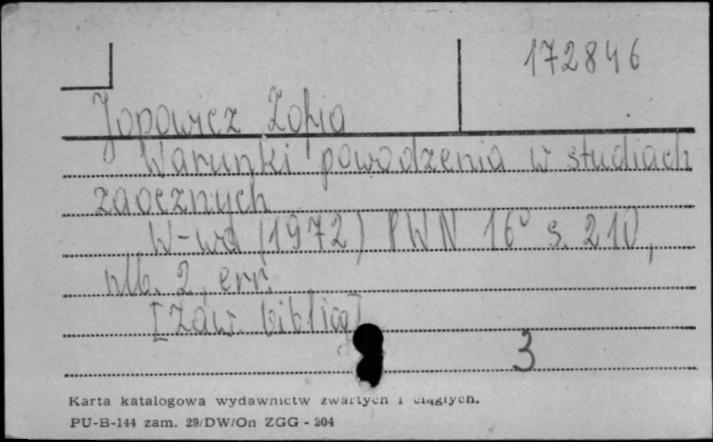 172846
Jopowicz Zofia
Warunki powodzenia w studiach
zaocznych
W-wa (1972) PWN 16° s. 210,
nlb. 2, err.
[Zaw. bibliog]
3
Karta katalogowa wydawnictw zwartych i ciągłych.
PU-B-144 zam. 29/DW/On ZGG - 204